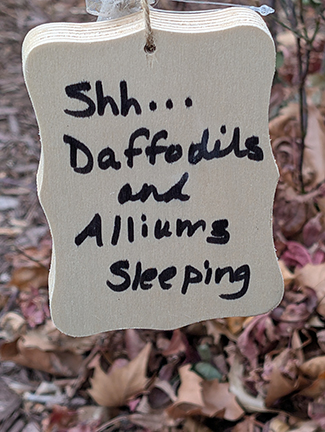 Shh...
Daffodils
and
Alliums
Sleeping